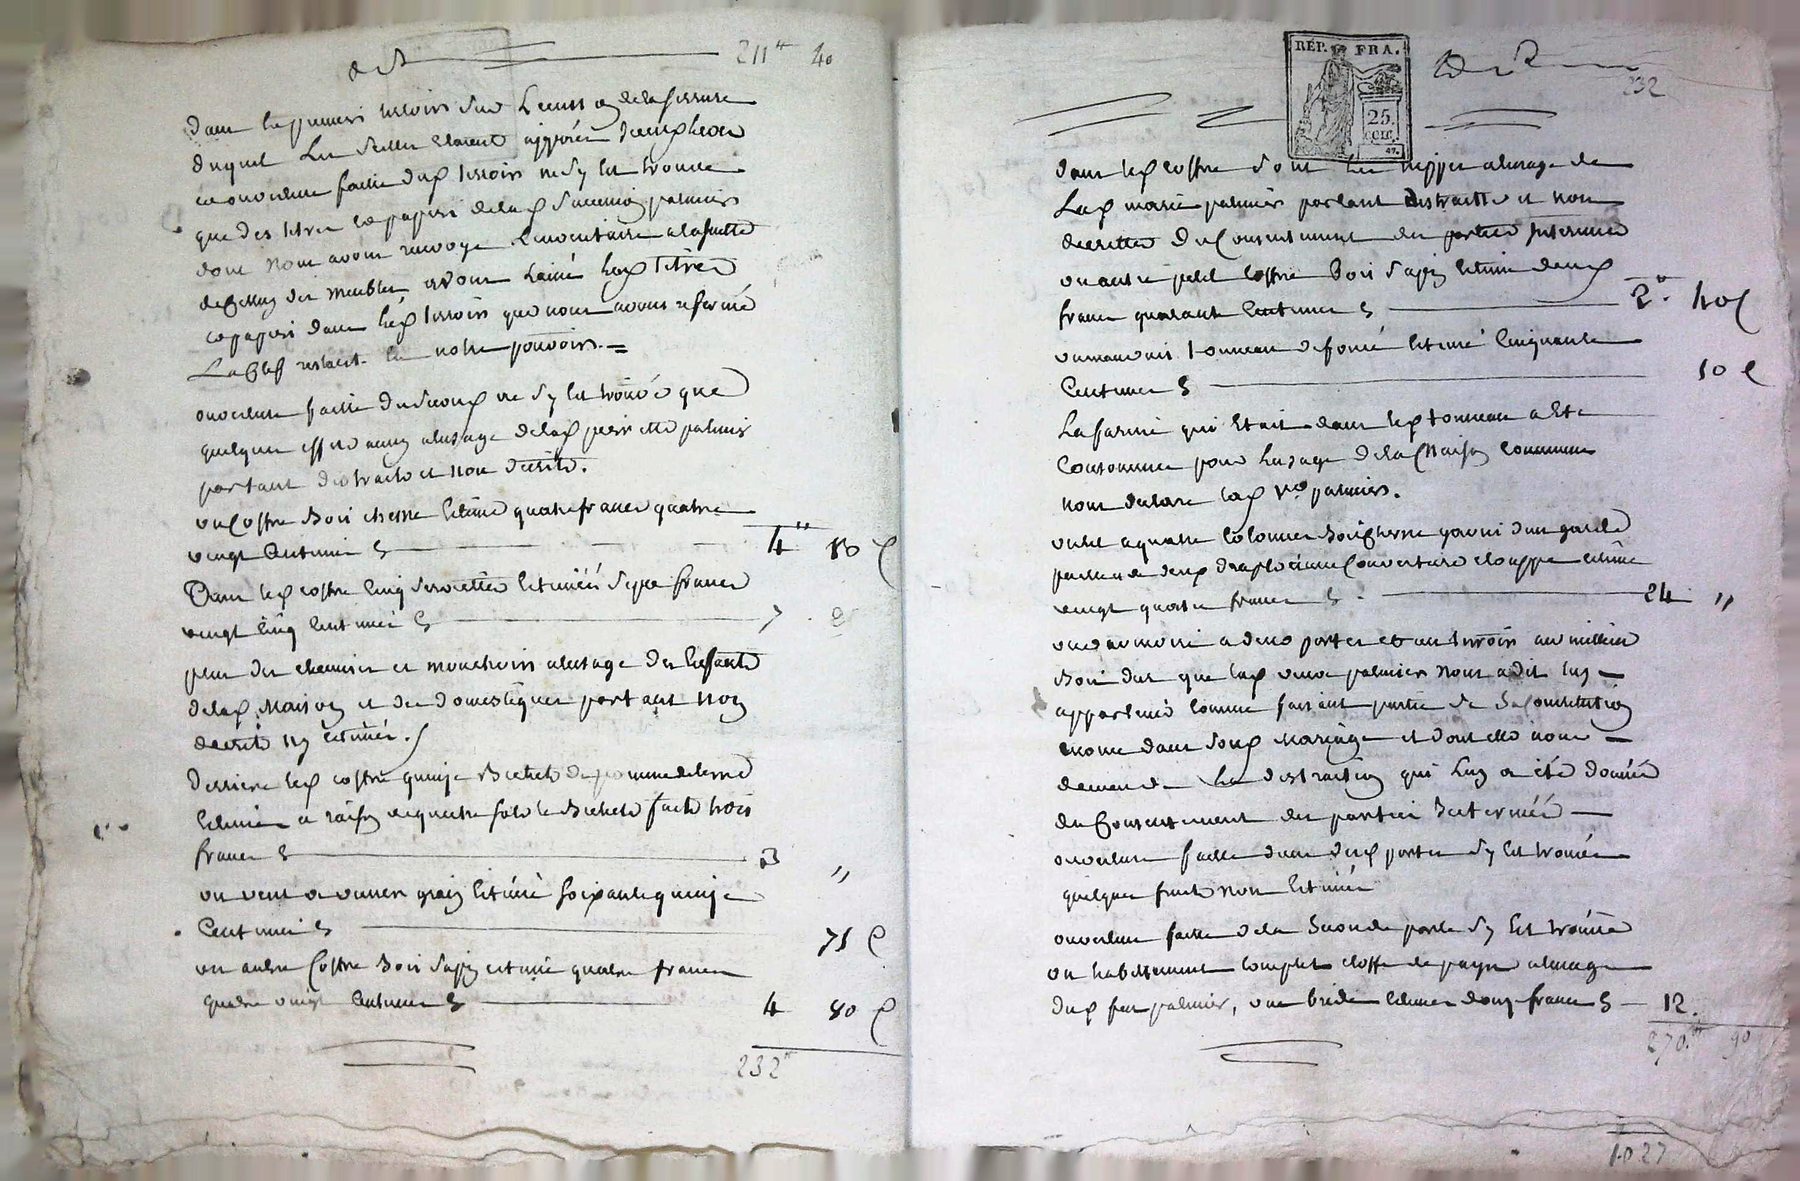 de St 211 40
dans le premier tirroir sur l'ecusson de la serrure
duquel les scellés etaient apposés d'empreau
ouverture faitte dud tirroir ne s'y est trouvé
que des titres et papiers de la d succession palmier
dont nous avons renvoyé l'inventaire à la suitte
de celluy des meubles avons laissé lesd titres
et papiers dans led tirroir que nous avons refermé
La clef restant en notre pouvoir. =
ouverture faitte du second ne s'y est trouvé que
quelques effets a l'usage de la d pierrette palmier
partant distraits et non décrits.
un coffre bois chesne estimé quatre francs quatre
vingt centimes 4" 80 c
Dans led coffre cinq serviettes estimées sept francs
vingt cinq centimes 7
plus des chemises et mouchoirs a l'usage des enfants
de la d maison et des domestiques partant non
décrits ny estimés.
derriere led coffre quinze bichets de pomme de terre
estimés a raison de quatre sols le bichet fait trois
francs 3 "
un vent a vanner grain estimé soixante quinze
Centimes 75 c
un autre coffre bois sapin estimé quatre francs
quatre vingt centimes 4 80 c
232"
RÉP. FRA.
25.
CEN.
47.
232
dans led coffre sont les nippes a l'usage de
La d marie palmier partant distraittes et non
decrittes du consentement des parties interessées
un autre petit coffre bois sapin estimé deux
francs quarante centimes 2" 40 c
un mauvais tonneau defoncé estimé cinquante
Centimes 50 c
La farine qui etait dans led tonneau a ete
Consommée pour l'usage de la maison comme
nous declare lad ve palmier.
un lit a quatre colonnes bois chesne garni d'un garde
paille de deux draps d'une couverture etouppe estimé
vingt quatre francs 24 "
une armoire a deux portes et un tirroir au millieu
Bois dur que lad veuve palmier nous a dit luy
appartenir comme faisant partie de sa constitution
dans son d mariage et dont elle nous
demande La distraction qui luy a été donnée
du Consentement des parties
ouverture faitte d'une des d portes s'y est trouvé
quelques fruits non estimés
ouverture faitte de la seconde porte s'y est trouvé
un habillement complet etoffe de pays a l'usage
dud feu palmier, une bride estimés douze francs 12.
270." 90
1027